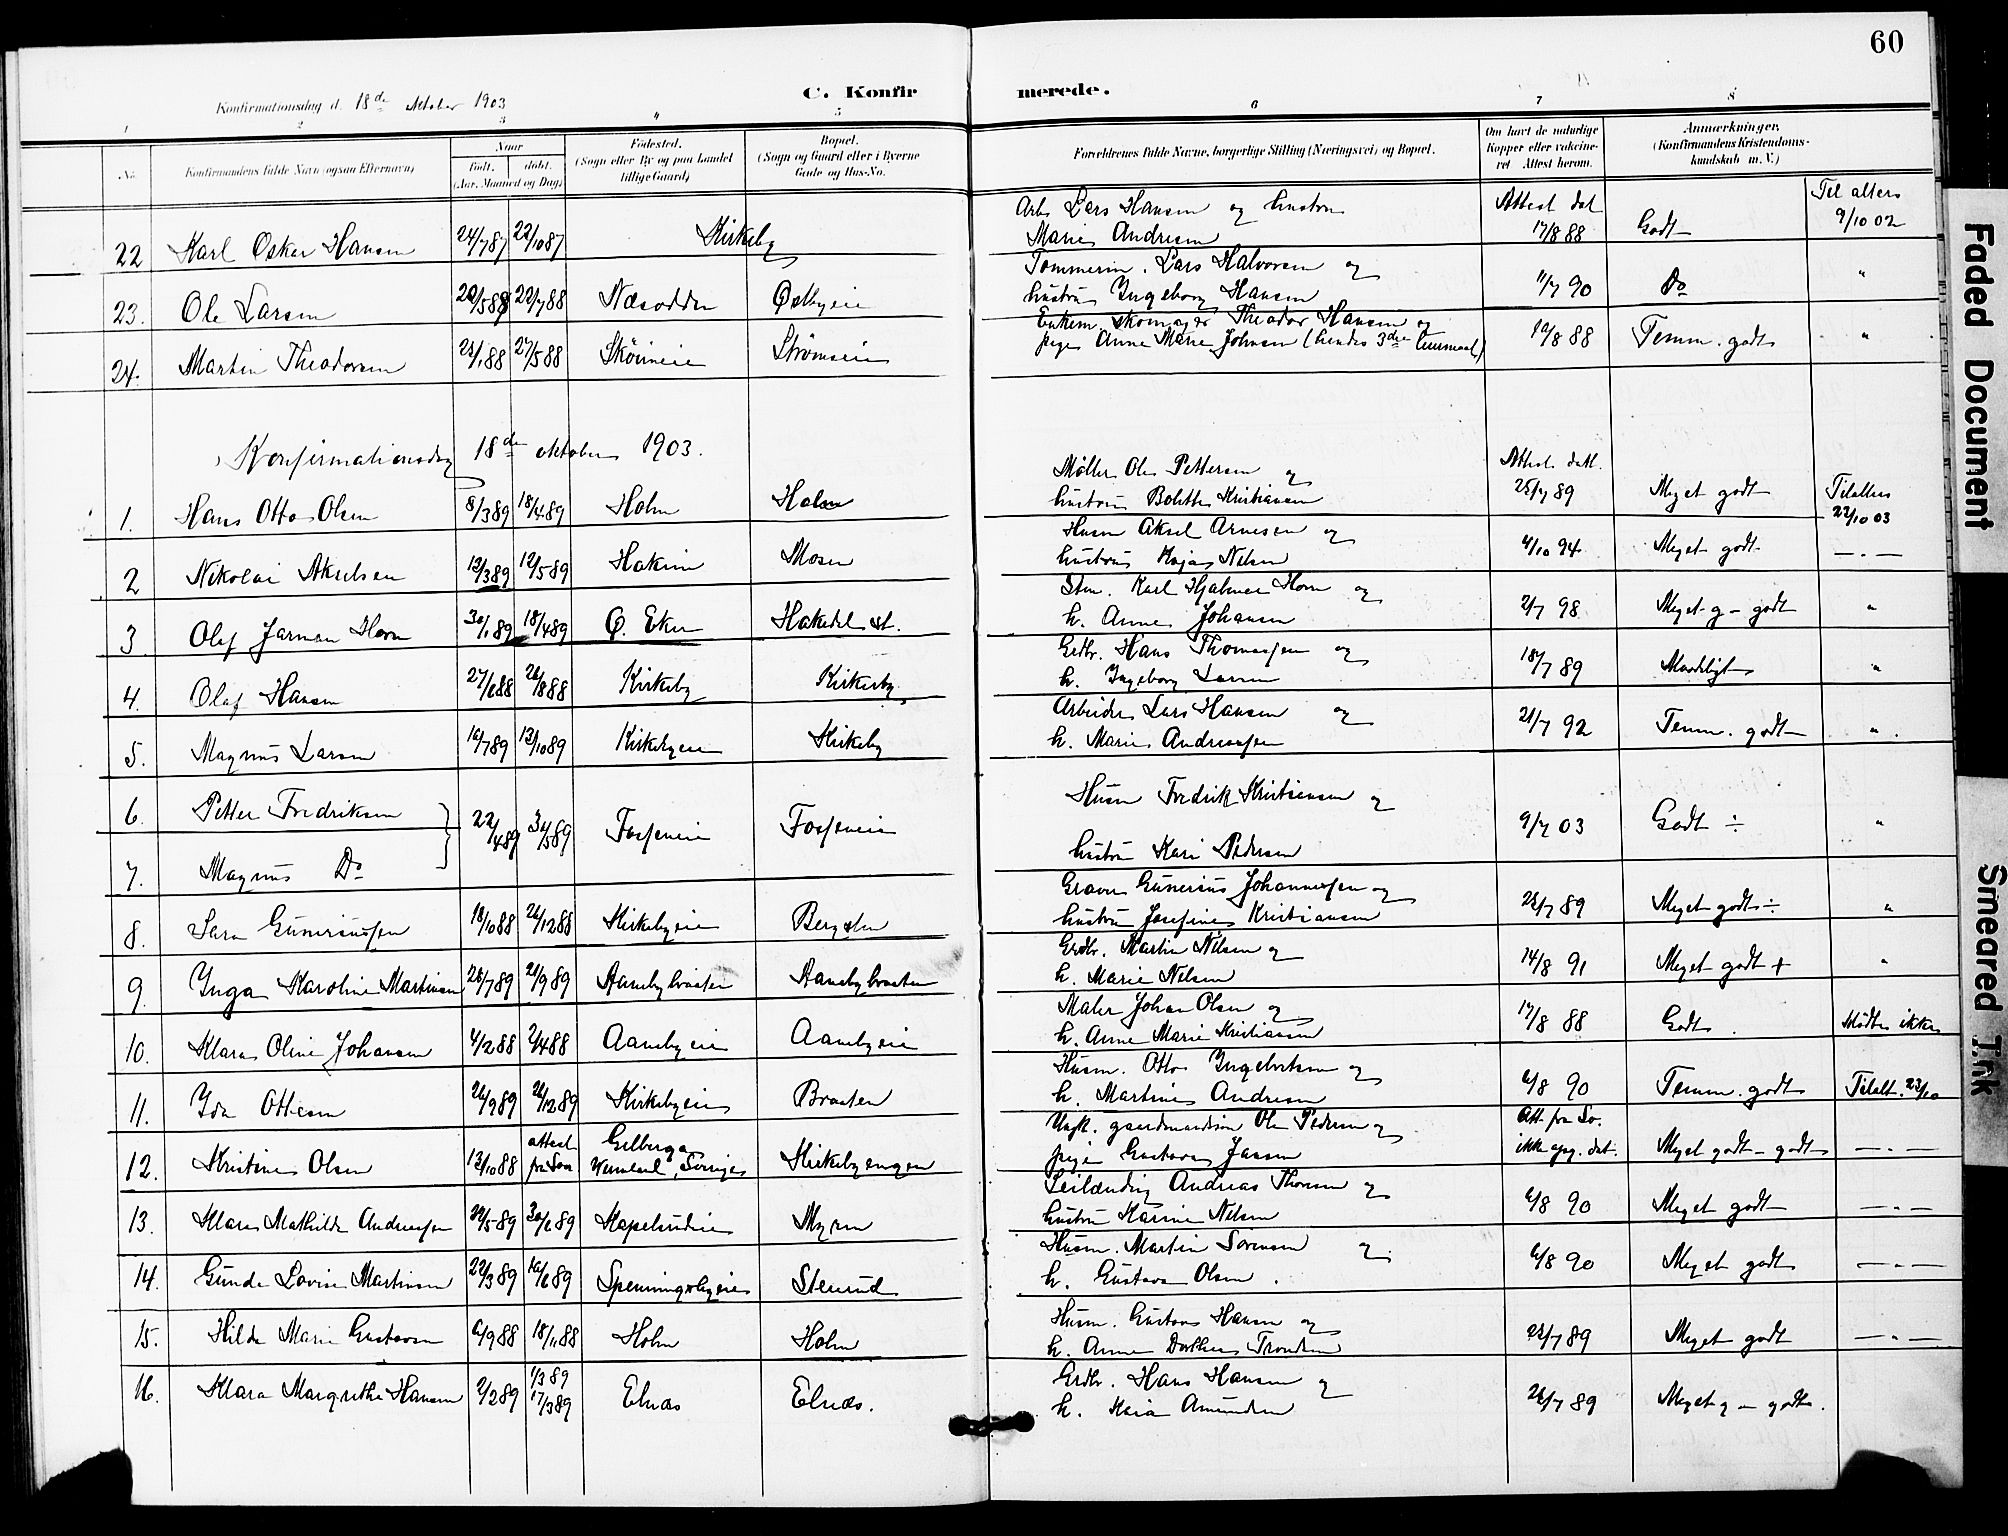 60
Konfirmationsdag d. 18de Oktober 1903
C. Konfirmerede.
1 2 3 4 5 6 7 8
No. Konfirmandens fulde Navn (ogsaa Efternavn)
Naar
født. døbt.
(Aar, Maaned og Dag)
Fødested.
(Sogn eller By og paa Landet
tillige Gaard)
Bopæl.
(Sogn og Gaard eller i Byerne
Gade og Hus-No.
Forældrenes fulde Navne, borgerlige Stilling (Næringsvei) og Bopæl.
Om havt de naturlige
Kopper eller vaccine-
ret Attest herom.
Anmærkninger.
(Konfirmandens Kristendoms-
kundskab m. V.)
22 Karl Oskar Hansen 24/7 87 22/10 87 Kirkeby Arb. Lars Hansen og hustru
Marie Andresen Attest dat 17/8 88 Godt Til alters 9/10 02
23. Ole Larsen 20/5 88 22/7 88 Næsodden Østbyeie Tømmerm. Lars Halvorsen og
hustru Ingeborg Hansen 11/7 90 Do "
24. Martin Theodorsen 88 27/5 88 Strømseie Enkem. skomager Theodor Hansen og
pige Anne Marie Johnsen (hendes 3die leiermaal) 10/8 88 Temm. godt "
Konfirmationsdag 18de oktober 1903.
1. Hans Otto Olsen 8/3 89 18/4 89 Holm Holm Møller Ole Pettersen og
hustru Bolette Kristiansen Attest dat. 25/7 89 Meget godt Til alters 22/10 03
2 Nikolai Akselsen 12/3 89 12/5 89 Hakim Mosen Husm Aksel Arnesen og
hustru Kaja Nilsen 4/10 94 Meget godt — " —
3 Olaf Jarman Horn 30/1 89 18/4 89 Ø. Eker Hakedal st. Stm. Karl Hjalmar Horn og
h. Anne Johansen 2/7 98 Meget g - godt "
4. Olaf Hansen 27/6 88 26/8 88 Kirkeby Kirkeby Grdbr. Hans Thomassen og
h. Ingeborg Larsen 18/7 89 Maadeligt "
5. Magnus Larsen 16/7 89 13/10 89 Kirkebyeie Kirkeby Arbeider Lars Hansen og
h. Marie Andreassen 21/7 92 Temm. godt "
6. Petter Fredriksen
7. Magnus Do
22/4 89 30/5 89 Fosseneie Fosseneie Husm Fredrik Kristiansen og
hustru Kari Pedersen 9/7 03 Godt ÷ "
8. Sara Guneriussen 18/10 88 26/12 88 Kirkebyeie Berg Graver Gunerius Johannessen og
hustru Josefine Kristiansen 25/7 89 Meget godt ÷ "
9. Inga Karoline Martinsen 28/7 89 21/9 89 Aanebybraaten Aanebybraaten Grdbr. Martin Nilsen og
h. Marie Nilsen 14/8 91 Meget godt + "
10. Klara Oline Johansen 4/2 88 2/4 88 Aanebyeie Aanebyeie Maler Johan Olsen og
h. Anne Marie Kristiansen 17/8 88 Godt. Mødte ikke
11. Ida Ottesen 26/9 89 26/12 89 Kirkebyeie Braaten Husm. Otto Ingebretsen og
h. Martine Andresen 6/8 90 Temm. godt Til alt. 22/10
12. Kristine Olsen 13/10 88 attest fra Sve Gilberga Vermland, Sverige Kirkebyengen Ungk. gaardmandssøn Ole Pedersen og
pige Gustava Jansen Att. fra Sv. ikke opg. dat. Meget godt - godt — " —
13. Klara Mathilde Andreassen 24/5 89 30/6 89 Kapelrudeie Myren Leilænding Andreas Thorsen og
hustru Karine Nilsen 6/8 90 Meget godt — " —
14. Gunda Lovise Martinsen 22/3 89 16/6 89 Spenningsbyeie Stenrud Husm. Martin Sørensen og
h. Gustava Olsen. 6/8 90 Meget godt — " —
15. Hilda Marie Gustavsen 6/9 88 18/11 88 Holm Holm Husm. Gustav Hansen og
h. Anne Dorthea Trondsen 25/7 89 Meget godt — " —
16. Klara Margrethe Hansen 2/2 89 1/3 89 17/3 89 Elnæs Elnæs. Grdbr. Hans Hansen og
h. Maria Amundsen 26/7 89 Meget g - godt.
Faded Document
Smeared Ink